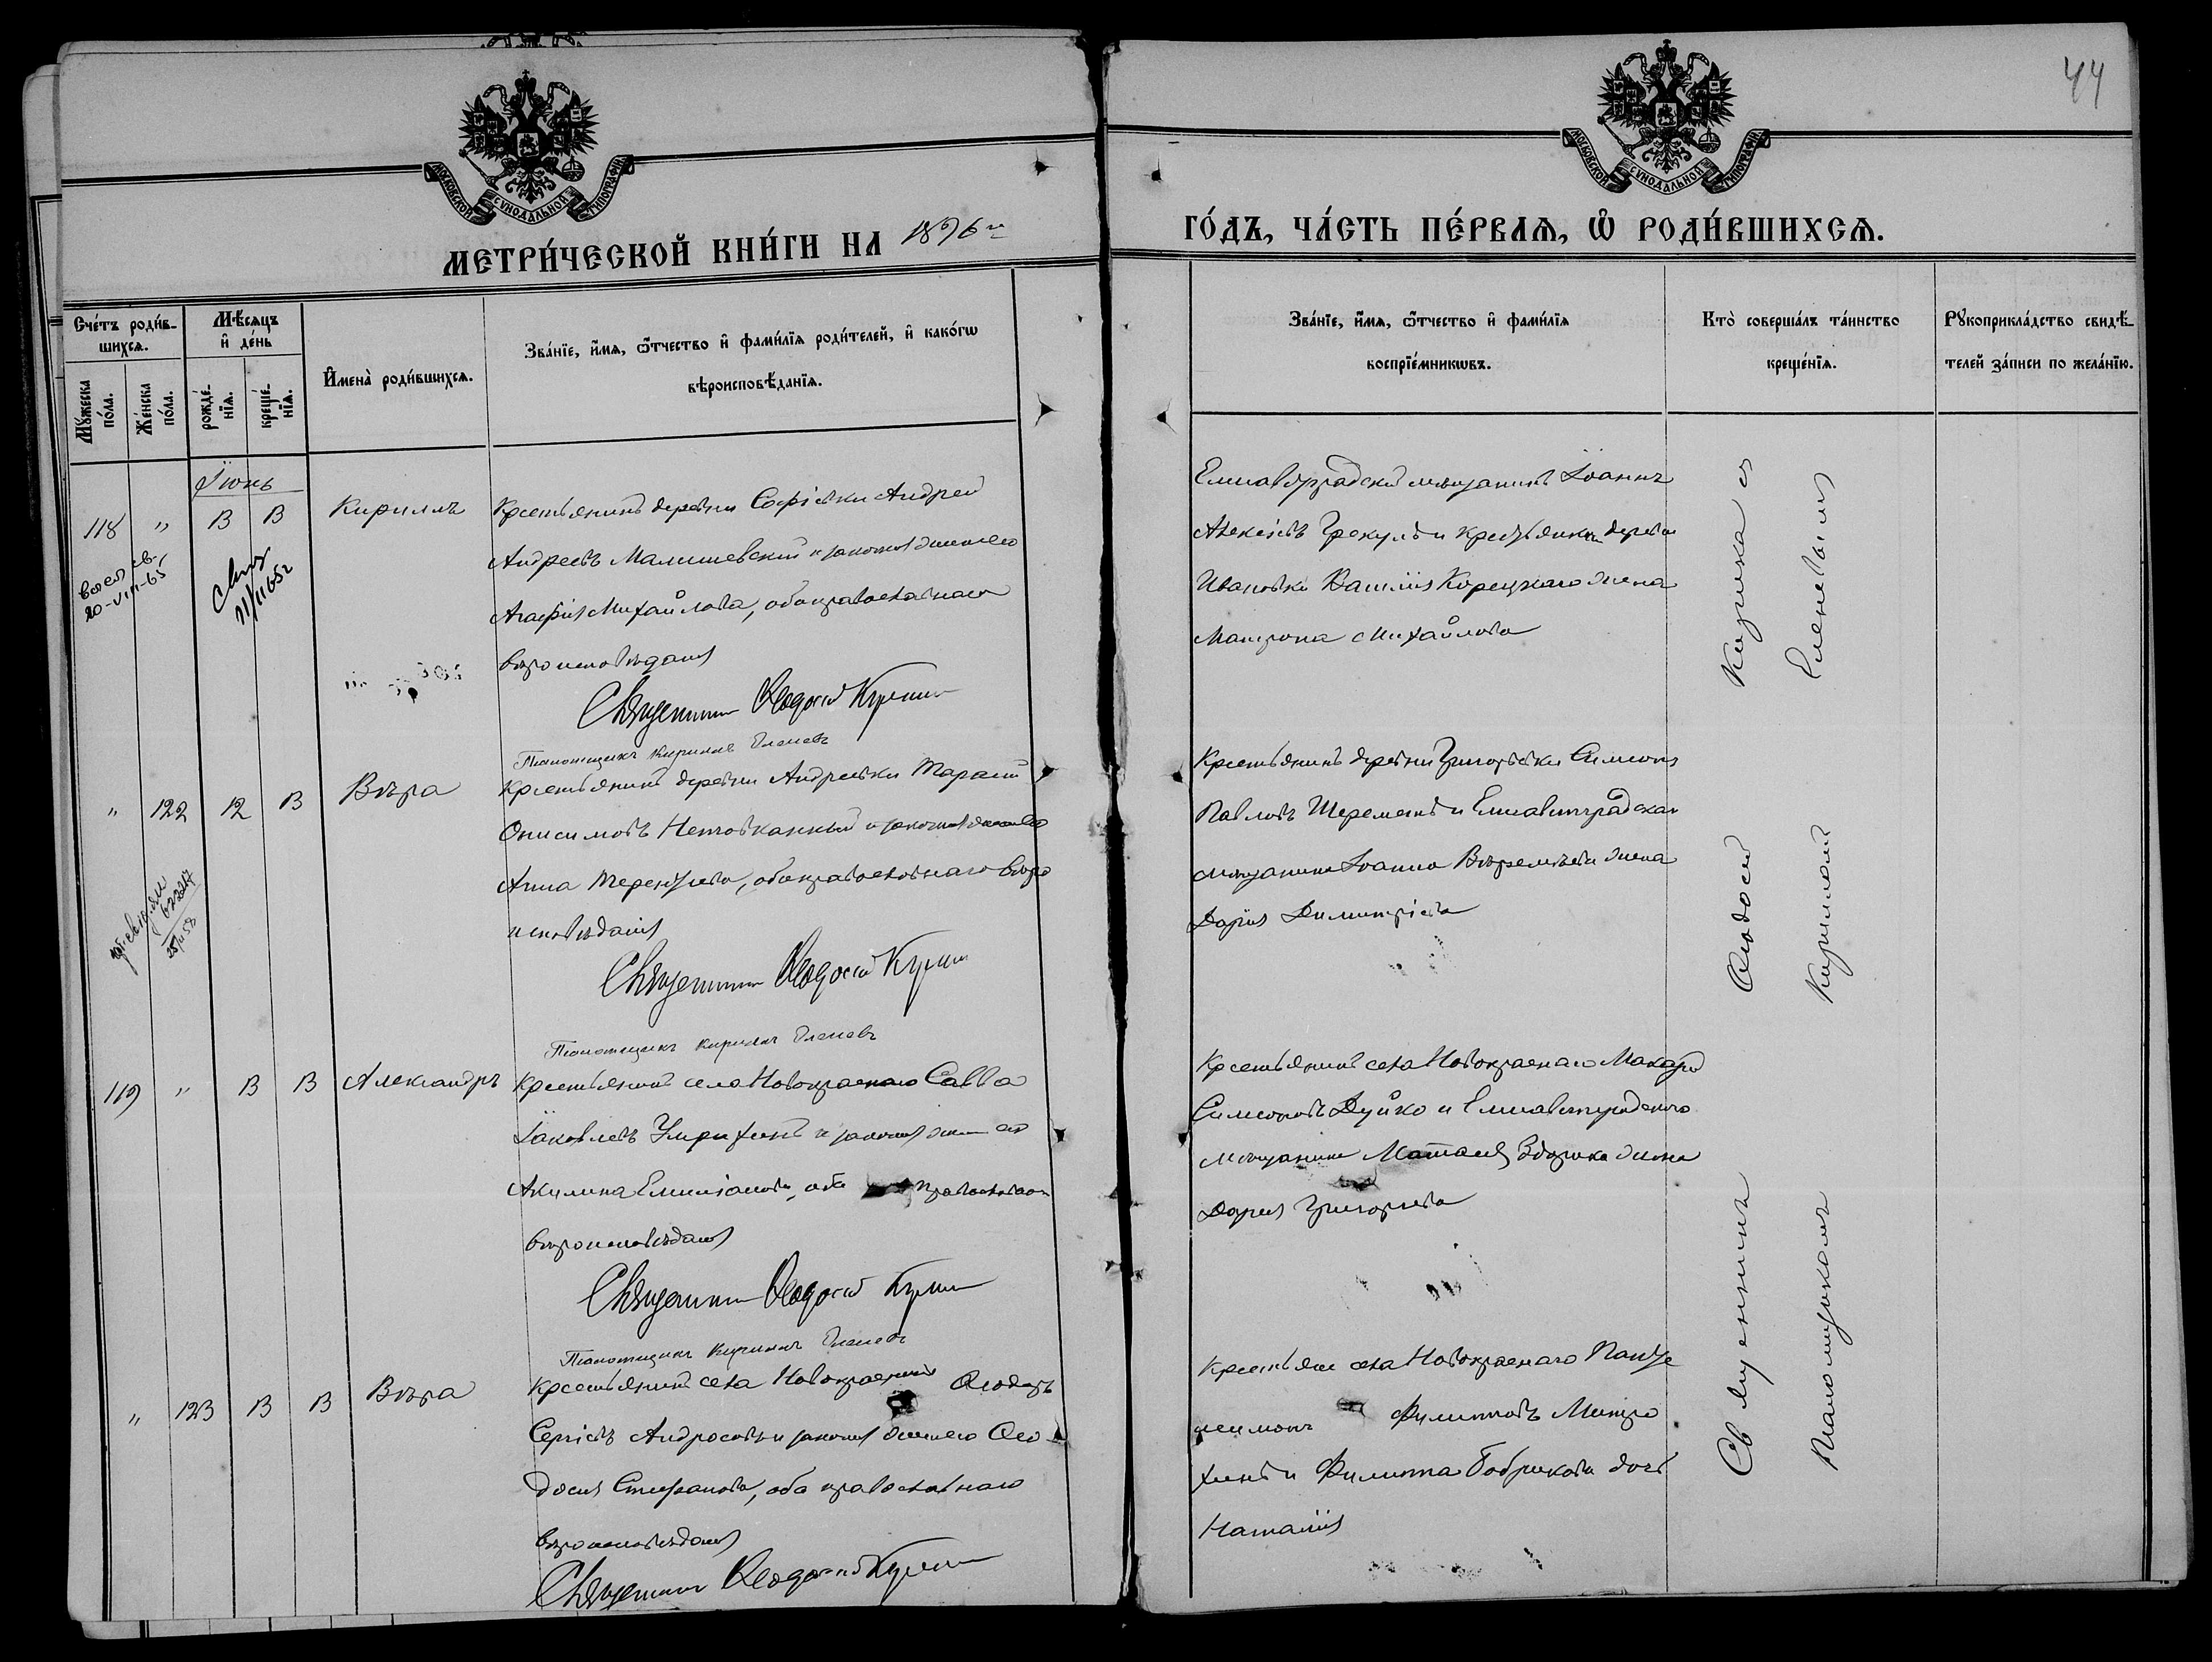 44
МОСКОВСКОЙ СУНОДАЛЬНОЙ ТИПОГРАФІИ
МОСКОВСКОЙ СУНОДАЛЬНОЙ ТИПОГРАФІИ
МЕТРИ́ЧЕСКОЙ КНИ́ГИ НА 1896 й
ГО́ДЪ, ЧА́СТЬ ПЕ́РВАѦ, Ѿ РОДИ́ВШИХСѦ.
Сче́тъ роди́в-
шихсѧ.
Мꙋ́жеска по́ла.
Же́нска по́ла.
Мѣ́сѧцъ и҆ де́нь
рожде́-
нїѧ.
креще́-
нїѧ.
И҆мена̀ роди́вшихсѧ.
Зва́нїе, и҆́мѧ, ѻ҆́тчество и҆ фами́лїѧ роди́телей, и҆ како́гѡ
вѣроисповѣ́данїѧ.
Зва́нїе, и҆́мѧ, ѻ҆́тчество и҆ фами́лїѧ
воспрїе́мникѡвъ.
Кто̀ соверша́лъ та́инство
креще́нїѧ.
Рꙋкоприкла́дство свидѣ́-
телей за́писи по жела́нїю.
Іюнь
118 " 13 13 Кириллъ
20-VIII-65
21/II 65 г
Крестьянинъ деревни Софіевки Андрей
Андреевъ Малишевскій и законная жена его
Агафія Михайлова, оба православнаго
вѣроисповѣданія
Священникъ Ѳеодосій
Псаломщикъ Кириллъ Еленевъ
Елисаветградскій мѣщанинъ Іоаннъ
Алексіевъ Грекулъ и крестьянина деревни
Ивановки Василія Корецкаго жена
Матрона Михайлова
" 122 12 13 Вѣра
25/III 58
Крестьянинъ деревни Андреевки Тарасій
Онисимовъ Нетовканный и законная жена его
Анна Терентіева, оба православнаго вѣро
исповѣданія
Священникъ Ѳеодосій
Псаломщикъ Кириллъ Еленевъ
Крестьянинъ деревни Григорьевки Симеонъ
Павловъ Шереметъ и Елисаветградскаго
мѣщанина Іоанна жена
Дарія Димитріева
119 " 13 13 Александръ
Крестьянинъ села Новокраснаго Савва
Іаковлевъ и законная жена его
Акилина Емиліанова, оба православнаго
вѣроисповѣданія
Священникъ Ѳеодосій
Псаломщикъ Кириллъ Еленевъ
Крестьянинъ села Новокраснаго Макарій
Симеоновъ Дуйко и Елисаветградскаго
мѣщанина жена
Дарія Григорьева
" 123 13 13 Вѣра
Крестьянинъ села Новокраснаго Ѳеодоръ
Сергіевъ Андросовъ и законная жена его Ѳео-
досія Стефанова, оба православнаго
вѣроисповѣданія
Священникъ Ѳеодосій
Крестьяне села Новокраснаго Панте
леимонъ Филипповъ Митро
хинъ и Филиппа Бобрикова дочь
Наталія
Священникъ Ѳеодосій
Псаломщикомъ Кирилломъ Еленевымъ